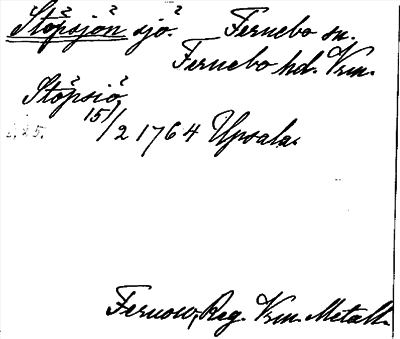 Stöpsjön sjö. Fernebo sn.
Fernebo hd. Vrm.
Stöpsiö
15/2 1764 Upsala.
Fernow, Reg. Vrm. Metall.